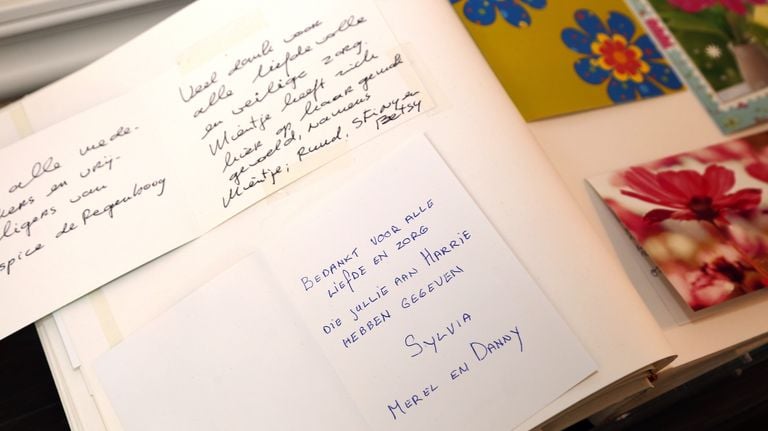 alle mede-
kers en vrij-
ligers van
spice de Regenboog
Veel dank voor
alle liefdevolle
en veilige zorg.
Mientje heeft zich
hier op haar gemak
gevoeld, namens
Mientje, Ruud, Stiny en
Betsy
BEDANKT VOOR ALLE
LIEFDE EN ZORG
DIE JULLIE AAN HARRIE
HEBBEN GEGEVEN
SYLVIA
MEREL EN DANNY